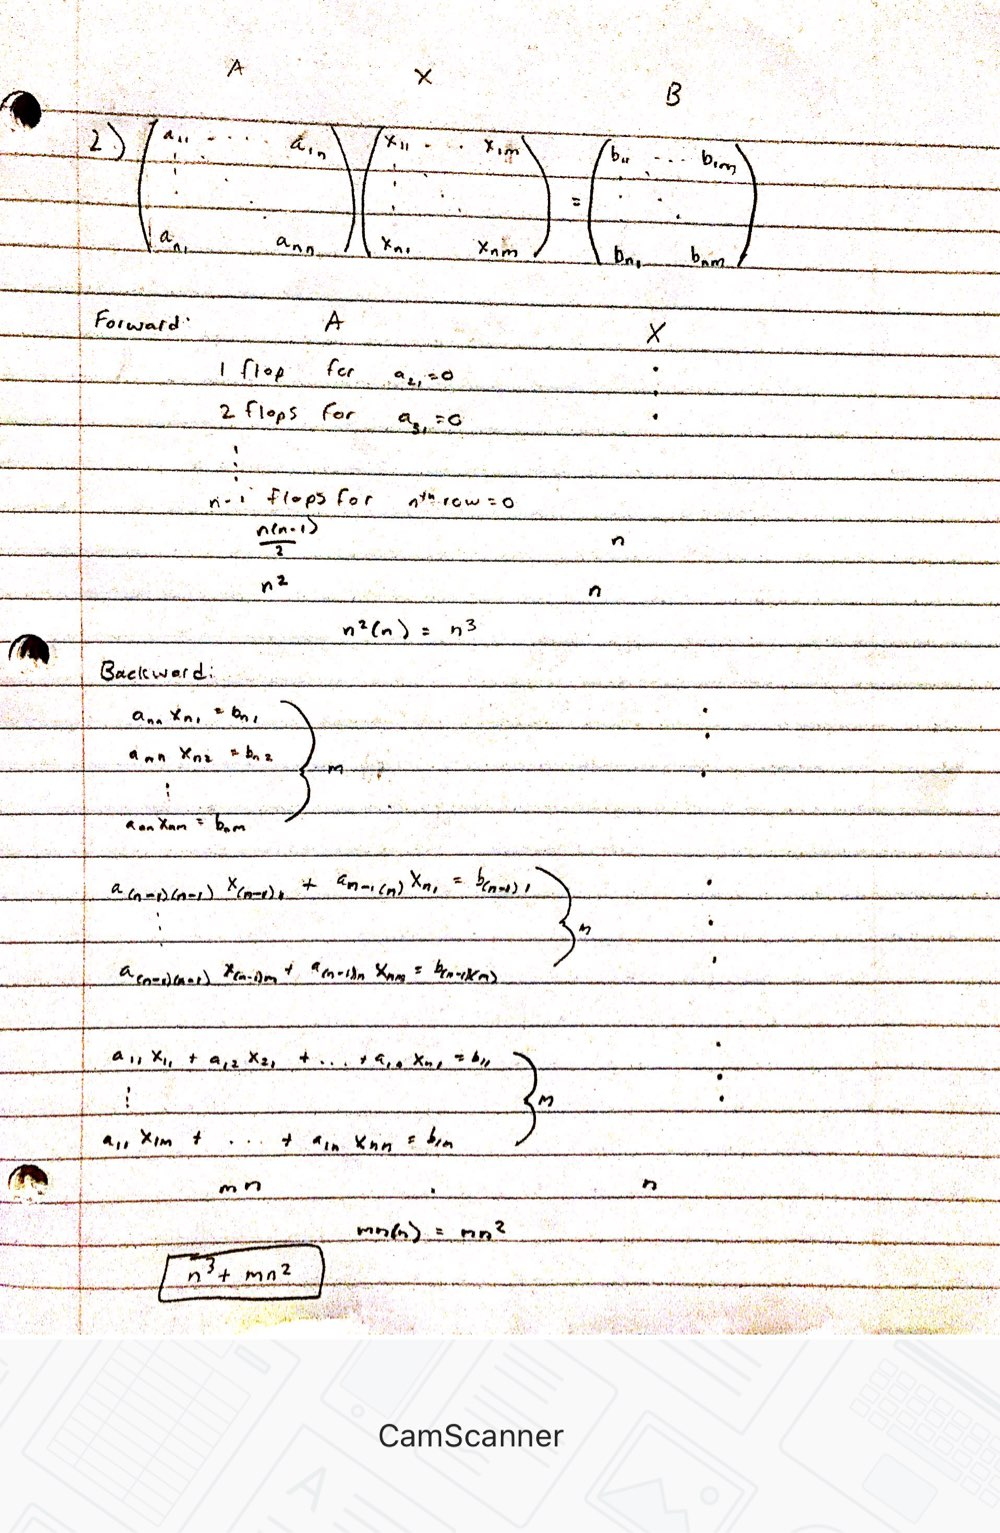 A X B
2.) ( a₁₁ · · · a₁ₙ ) ( x₁₁ · · · x₁ₘ ) = ( b₁₁ · · · b₁ₘ )
aₙ₁ aₙₙ xₙ₁ xₙₘ bₙ₁ bₙₘ
Forward: A X
1 flop for a₂₁=0
2 flops for a₃₁=0
n-1 flops for nᵗʰ row=0
n(n-1)/2 n
n² n
n²(n) = n³
Backward:
aₙₙ xₙ₁ = bₙ₁
aₙₙ xₙ₂ = bₙ₂ } m
aₙₙ xₙₘ = bₙₘ
a₍ₙ₋₁₎₍ₙ₋₁₎ x₍ₙ₋₁₎₁ + aₙ₋₁₍ₙ₎ xₙ₁ = b₍ₙ₋₁₎₁
} m
a₍ₙ₋₁₎₍ₙ₋₁₎ x₍ₙ₋₁₎ₘ + a₍ₙ₋₁₎ₙ xₙₘ = b₍ₙ₋₁₎₍ₘ₎
a₁₁ x₁₁ + a₁₂ x₂₁ + ... + a₁ₙ xₙ₁ = b₁₁
} m
a₁₁ x₁ₘ + .... + a₁ₙ xₙₙ = b₁ₙ
mn · n
mn(n) = mn²
n³ + mn²
CamScanner